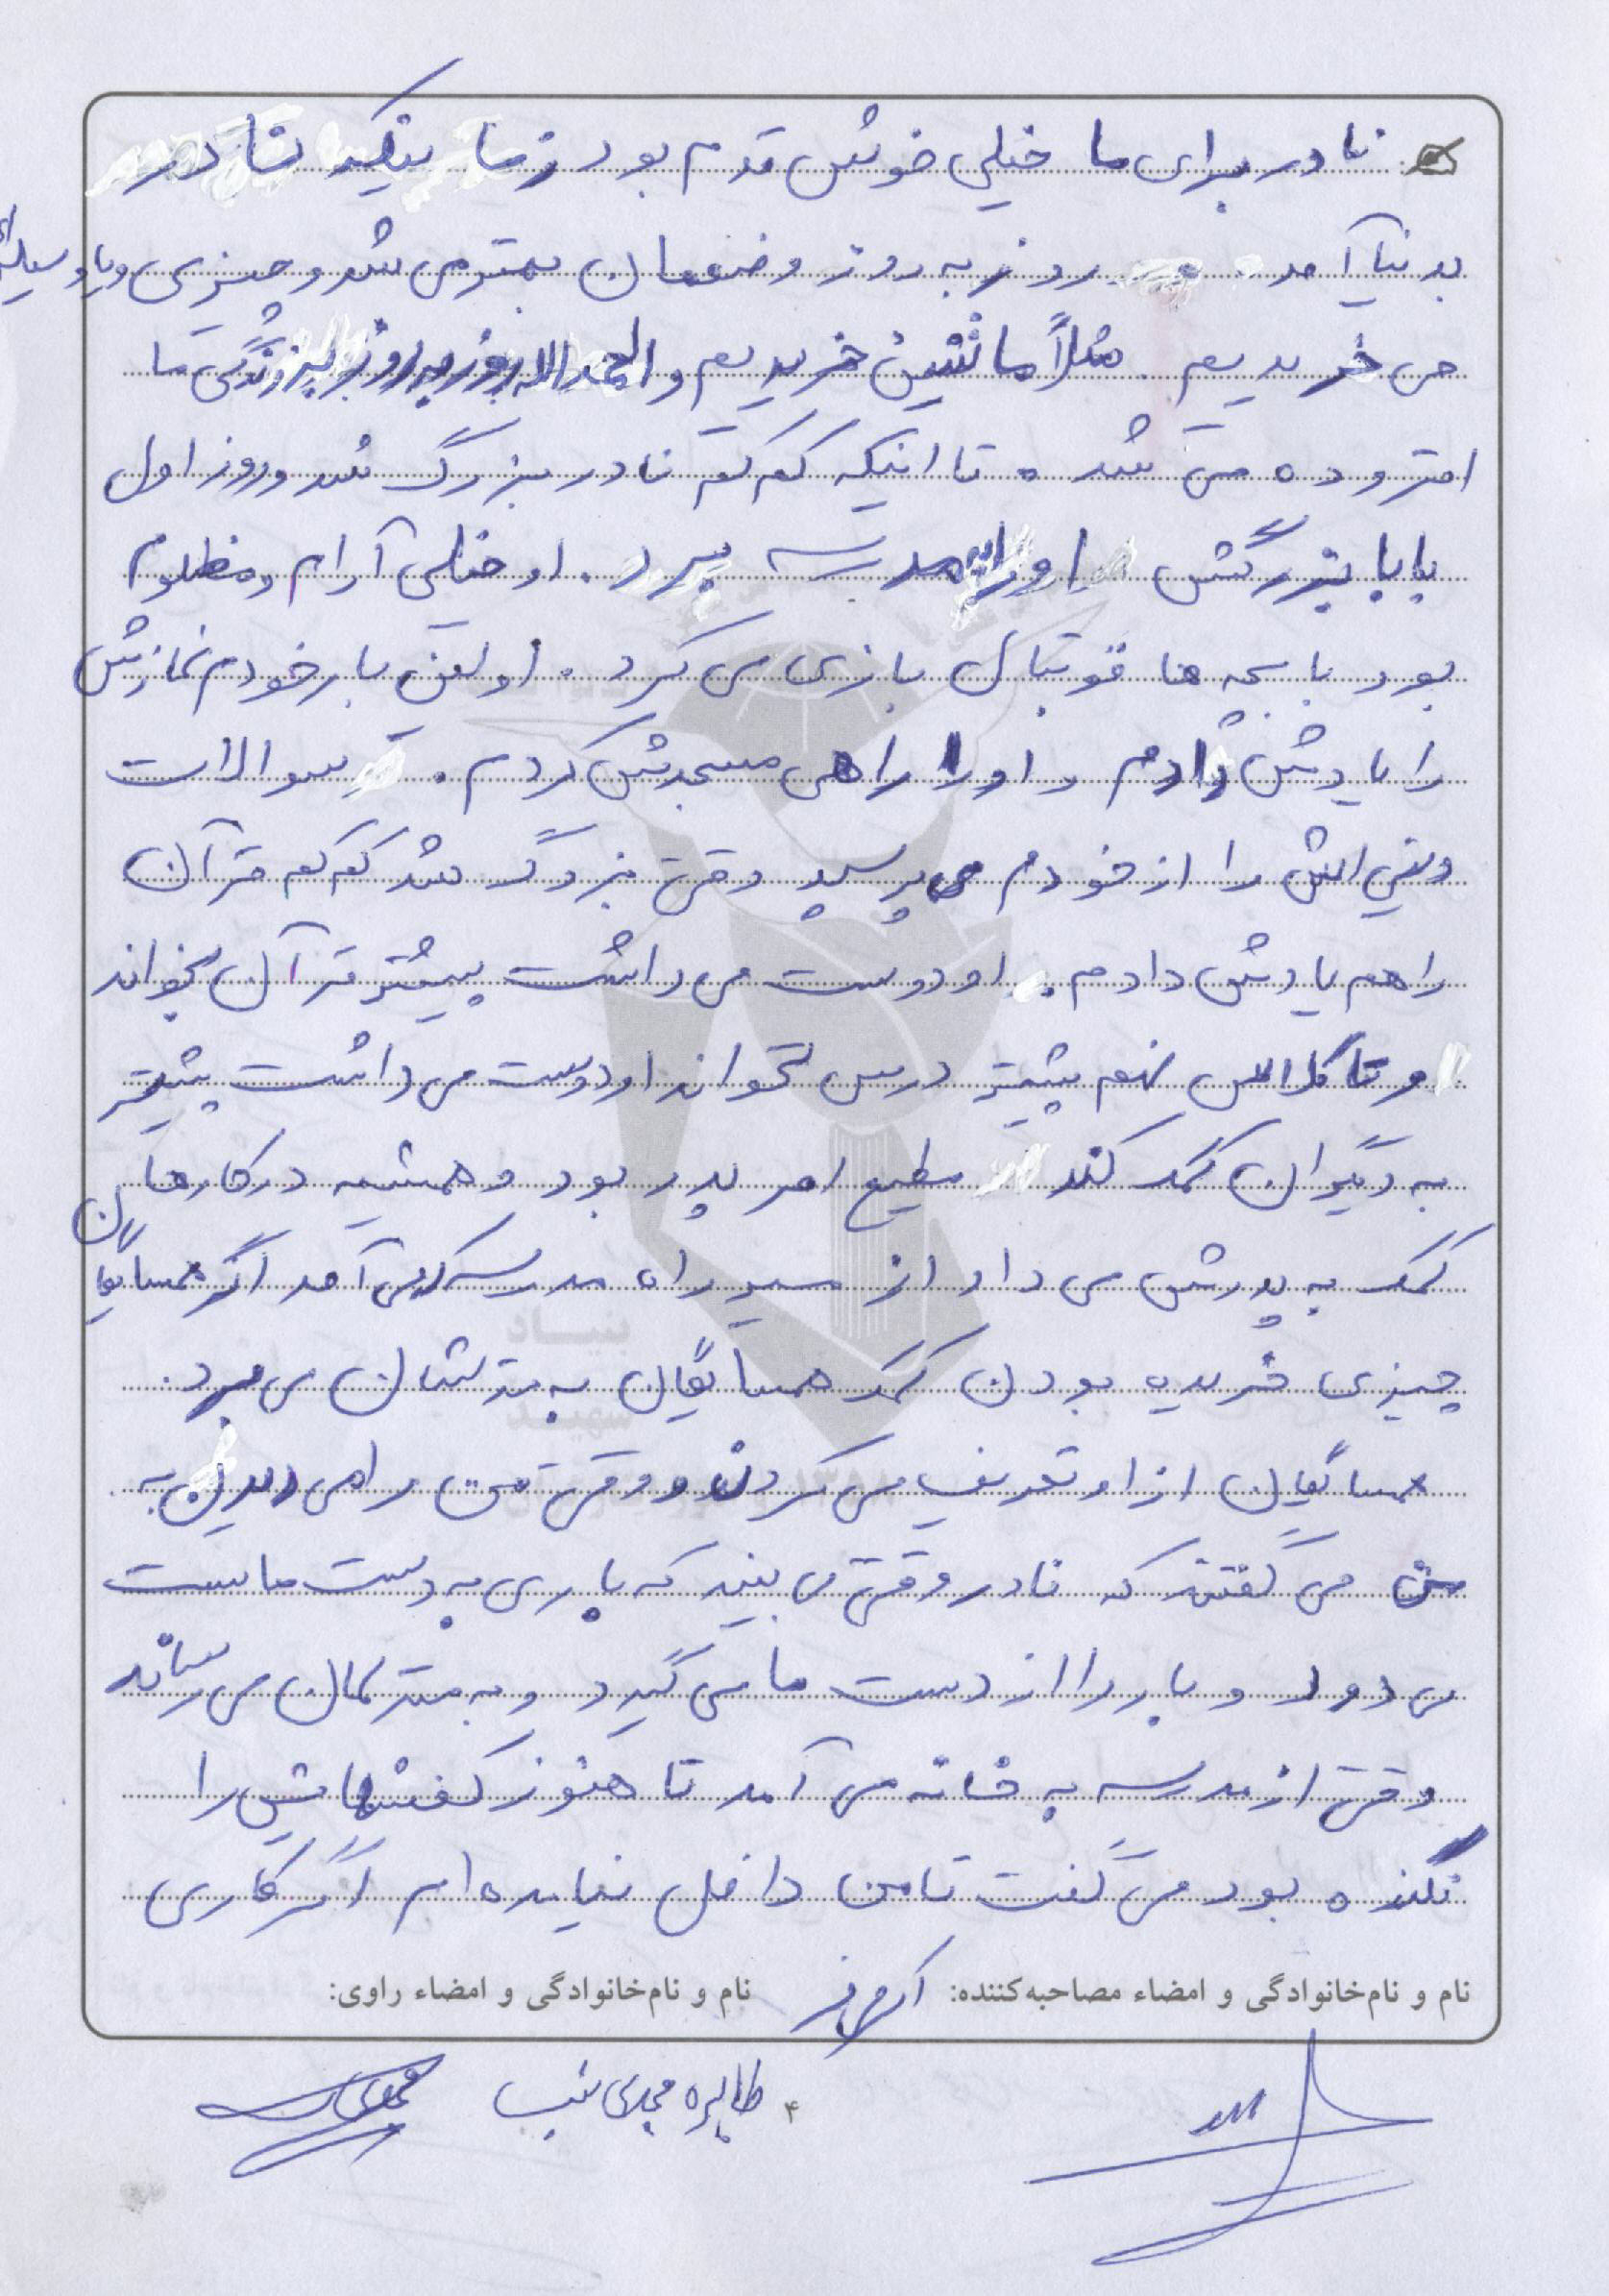 نادر برای ما خیلی خوش قدم بود زمانیکه نادر
بدنیا آمد روز به روز وضعمان بهتر می شد و چیزی و یا وسیله‌ای
می خریدیم مثلاً ماشین خریدیم و الحمدالله روز به روز بر زندگی ما
افزوده می شده تا اینکه کم کم نادر بزرگ شد و روز اول
بابا بزرگش او را به مدرسه برد. او خیلی آرام و مظلوم
بود با بچه ها فوتبال بازی می کرد. اولین بار خودم نمازش
را یادش دادم و او را راهی مسجدش کردم. سوالات
دینی اش را از خودم می پرسید وقتی بزرگ شد کم کم قرآن
را هم یادش دادم. او دوست می داشت بیشتر قرآن بخواند
او تا کلاس نهم بیشتر درس نخواند او دوست می داشت بیشتر
به دیگران کمک کند مطیع امر پدر بود و همیشه در کارها
کمک به پدرش می داد از مسیر راه مدرسه که می آمد اگر همسایگان
چیزی خریده بودن کمک همسایگان به منزلشان می برد.
همسایگان از او تعریف می کردند و وقتی من را می دیدن به
من می گفتند که نادر وقتی می بیند که باری به دست ماست
می دود و بار را از دست ما می گیرد و به منزلمان می رساند
وقتی از مدرسه به خانه می آمد تا هنوز کفشهایش را
نکنده بود می گفت تا من داخل نیامده ام اگر کاری
نام و نام‌خانوادگی و امضاء مصاحبه‌کننده: نام و نام‌خانوادگی و امضاء راوی:
۴ طاهره محمدی نسب
بنیاد
شهید